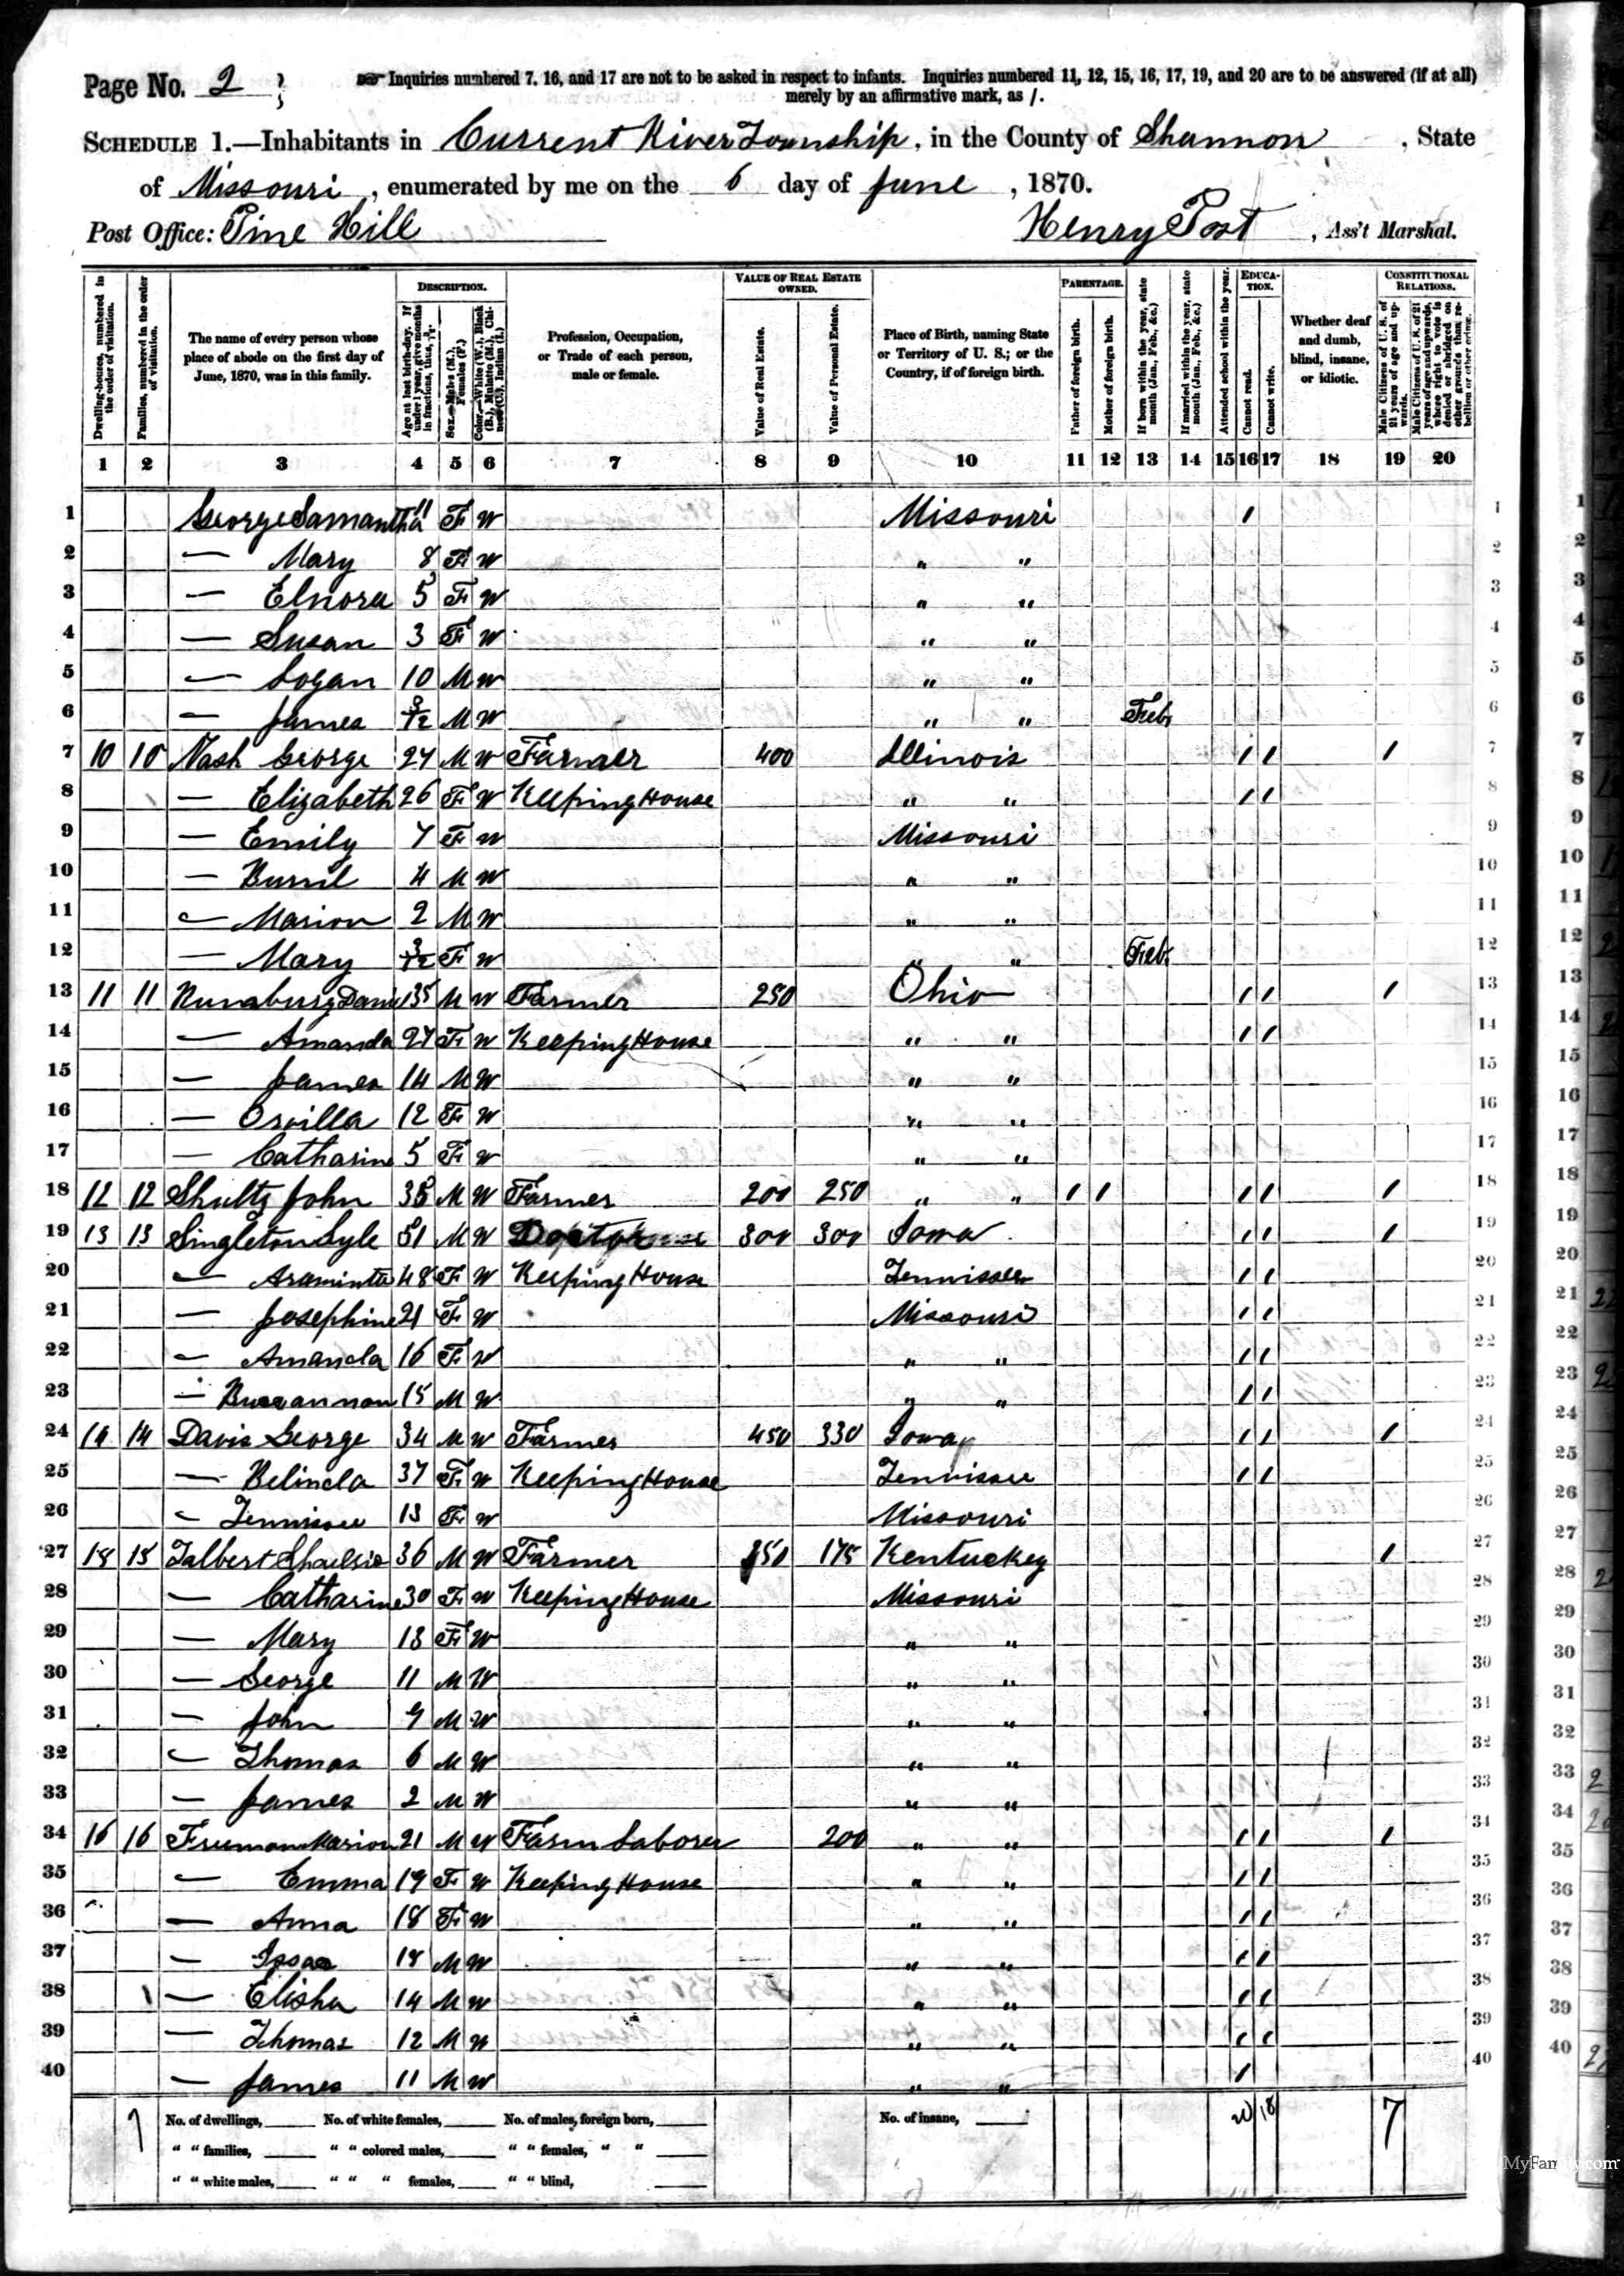 Page No. 2
Inquiries numbered 7, 16, and 17 are not to be asked in respect to infants. Inquiries numbered 11, 12, 15, 16, 17, 19, and 20 are to be answered (if at all)
merely by an affirmative mark, as /.
SCHEDULE 1.—Inhabitants in Current River Township, in the County of Shannon, State
of Missouri, enumerated by me on the 6 day of June, 1870.
Post Office: Pine Hill Henry Post, Ass't Marshal.
Dwelling-houses, numbered in the order of visitation.
Families, numbered in the order of visitation.
The name of every person whose place of abode on the first day of June, 1870, was in this family.
DESCRIPTION.
Age at last birth-day. If under 1 year, give months in fractions, thus, 3/12.
Sex.—Males (M.), Females (F.)
Color.—White (W.), Black (B.), Mulatto (M.), Chinese (C.), Indian (I.)
Profession, Occupation, or Trade of each person, male or female.
VALUE OF REAL ESTATE OWNED.
Value of Real Estate.
Value of Personal Estate.
Place of Birth, naming State or Territory of U. S.; or the Country, if of foreign birth.
PARENTAGE.
Father of foreign birth.
Mother of foreign birth.
If born within the year, state month (Jan., Feb., &c.)
If married within the year, state month (Jan., Feb., &c.)
Attended school within the year.
EDUCATION.
Cannot read.
Cannot write.
Whether deaf and dumb, blind, insane, or idiotic.
CONSTITUTIONAL RELATIONS.
Male Citizens of U. S. of 21 years of age and upwards.
Male Citizens of U. S. of 21 years of age and upwards, whose right to vote is denied or abridged on other grounds than rebellion or other crime.
1 2 3 4 5 6 7 8 9 10 11 12 13 14 15 16 17 18 19 20
1 George Samantha 11 F W Missouri / 1
2 — Mary 8 F W " " 2
3 — Elnora 5 F W " " 3
4 — Susan 3 F W " " 4
5 — Logan 10 M W " " 5
6 — James 3/12 M W " " Feb. 6
7 10 10 Nash George 27 M W Farmer 400 Illinois / / / 7
8 — Elizabeth 26 F W Keeping House " " / / 8
9 — Emily 7 F W Missouri 9
10 — 4 M W " " 10
11 — Marion 2 M W " " 11
12 — Mary 3/12 F W " " Feb. 12
13 11 11 35 M W Farmer 250 Ohio / / / 13
14 — Amanda 27 F W Keeping House " " / / 14
15 — James 14 M W " " 15
16 — Orvilla 12 F W " " 16
17 — Catharine 5 F W " " 17
18 12 12 Shultz John M W Farmer 200 250 " " / / / / / 18
19 13 13 Singleton Lyle 51 M W Doctor 300 300 Iowa / / / 19
20 — Araminta 48 F W Keeping House Tennissee / / 20
21 — Josephine 21 F W Missouri / / 21
22 — Amanda 16 F W " " / / 22
23 — 15 M W " " / / 23
24 14 14 Davis George 34 M W Farmer 450 330 Iowa / / / 24
25 — Belinda 37 F W Keeping House Tennissee / / 25
26 — Tennissee 13 F W Missouri 26
27 15 15 Talbert 36 M W Farmer 175 Kentuckey / 27
28 — Catharine 30 F W Keeping House Missouri 28
29 — Mary 13 F W " " 29
30 — George 11 M W " " 30
31 — John 9 M W " " 31
32 — Thomas 6 M W " " 32
33 — James 2 M W " " 33
34 16 16 Freeman Marion 21 M W Farm Laborer 200 " " / / / 34
35 — Emma 19 F W Keeping House " " / / 35
36 — Anna 18 F W " " / / 36
37 — Isaac 18 M W " " / / 37
38 — Elisha 14 M W " " / / 38
39 — Thomas 12 M W " " / / 39
40 — James 11 M W " " / 40
7 No. of dwellings, No. of white females, No. of males, foreign born, No. of insane, 20 18 7
" " families, " " colored males, " " females, " "
" " white males, " " " females, " " blind,
MyFamily.com